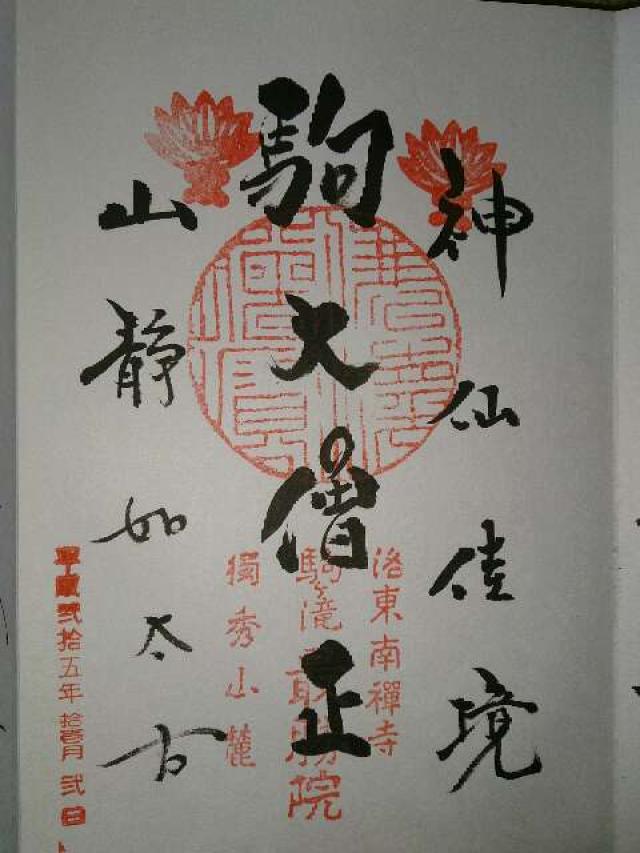 神仙佳境
駒大僧正
山静如太古
洛東南禪寺
駒ヶ滝最勝院
獨秀山麓
平成弐拾五年拾壱月弐日